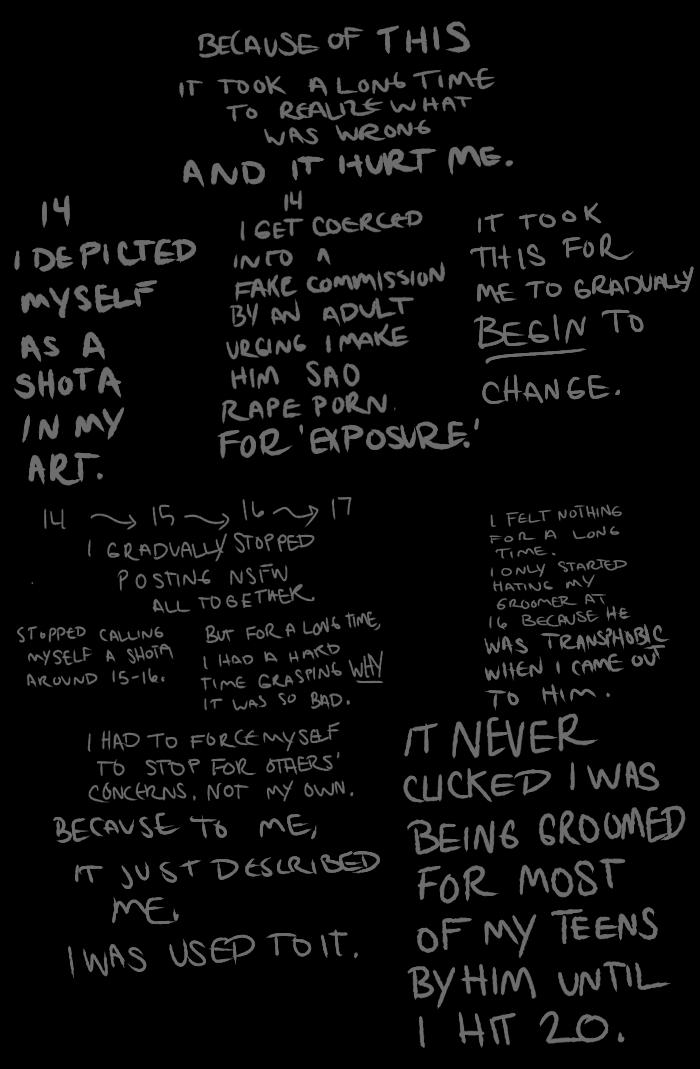 BECAUSE OF THIS
IT TOOK A LONG TIME
TO REALIZE WHAT
WAS WRONG
AND IT HURT ME.
14
I DEPICTED
MYSELF
AS A
SHOTA
IN MY
ART.
14
I GET COERCED
INTO A
FAKE COMMISSION
BY AN ADULT
URGING I MAKE
HIM SAD
RAPE PORN.
FOR 'EXPOSURE.'
IT TOOK
THIS FOR
ME TO GRADUALLY
BEGIN TO
CHANGE.
14 → 15 → 16 → 17
I GRADUALLY STOPPED
POSTING NSFW
ALL TOGETHER
STOPPED CALLING
MYSELF A SHOTA
AROUND 15-16.
BUT FOR A LONG TIME,
I HAD A HARD
TIME GRASPING WHY
IT WAS SO BAD.
I FELT NOTHING
FOR A LONG
TIME.
I ONLY STARTED
HATING MY
GROOMER AT
16 BECAUSE HE
WAS TRANSPHOBIC
WHEN I CAME OUT
TO HIM.
I HAD TO FORCE MYSELF
TO STOP FOR OTHERS'
CONCERNS. NOT MY OWN.
BECAUSE TO ME,
IT JUST DESCRIBED
ME.
I WAS USED TO IT.
IT NEVER
CLICKED I WAS
BEING GROOMED
FOR MOST
OF MY TEENS
BY HIM UNTIL
I HIT 20.